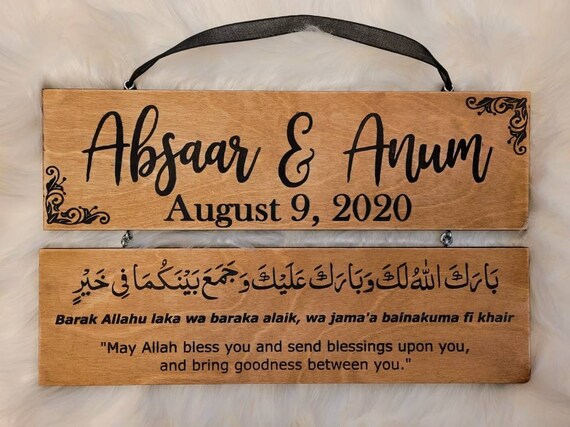 Absaar & Anum
August 9, 2020
بَارَكَ اللهُ لَكَ وَبَارَكَ عَلَيْكَ وَجَمَعَ بَيْنَكُمَا فِي خَيْرٍ
Barak Allahu laka wa baraka alaik, wa jama'a bainakuma fi khair
"May Allah bless you and send blessings upon you,
and bring goodness between you."